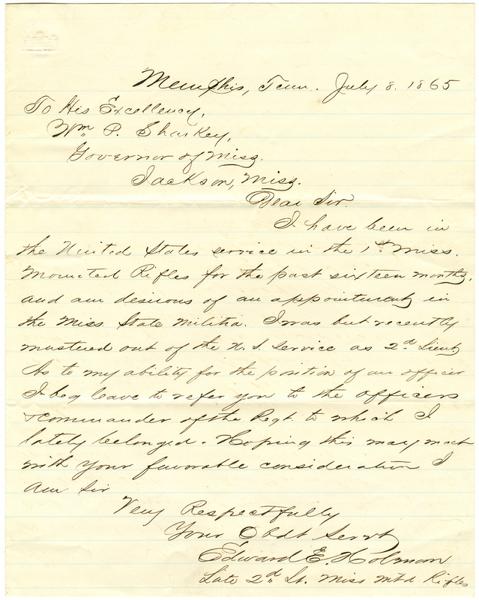 Memphis, Tenn. July 8. 1865
To His Excellency,
Wm P. Sharkey,
Governor of Miss.
Jackson, Miss.
Dear Sir
I have been in
the United States service in the 1st Miss.
Mounted Rifles for the past sixteen months,
and am desirous of an appointment in
the Miss. State Militia. I was but recently
mustered out of the U.S. Service as 2d Lieut
As to my ability for the position of an officer
I beg leave to refer you to the officers
& commander of the Regt. to which I
lately belonged. Hoping this may meet
with your favorable consideration I
am Sir
Very Respectfully
Your Obdt Servt
Edward E. Holman
Late 2d Lt. Miss Mtd Rifles